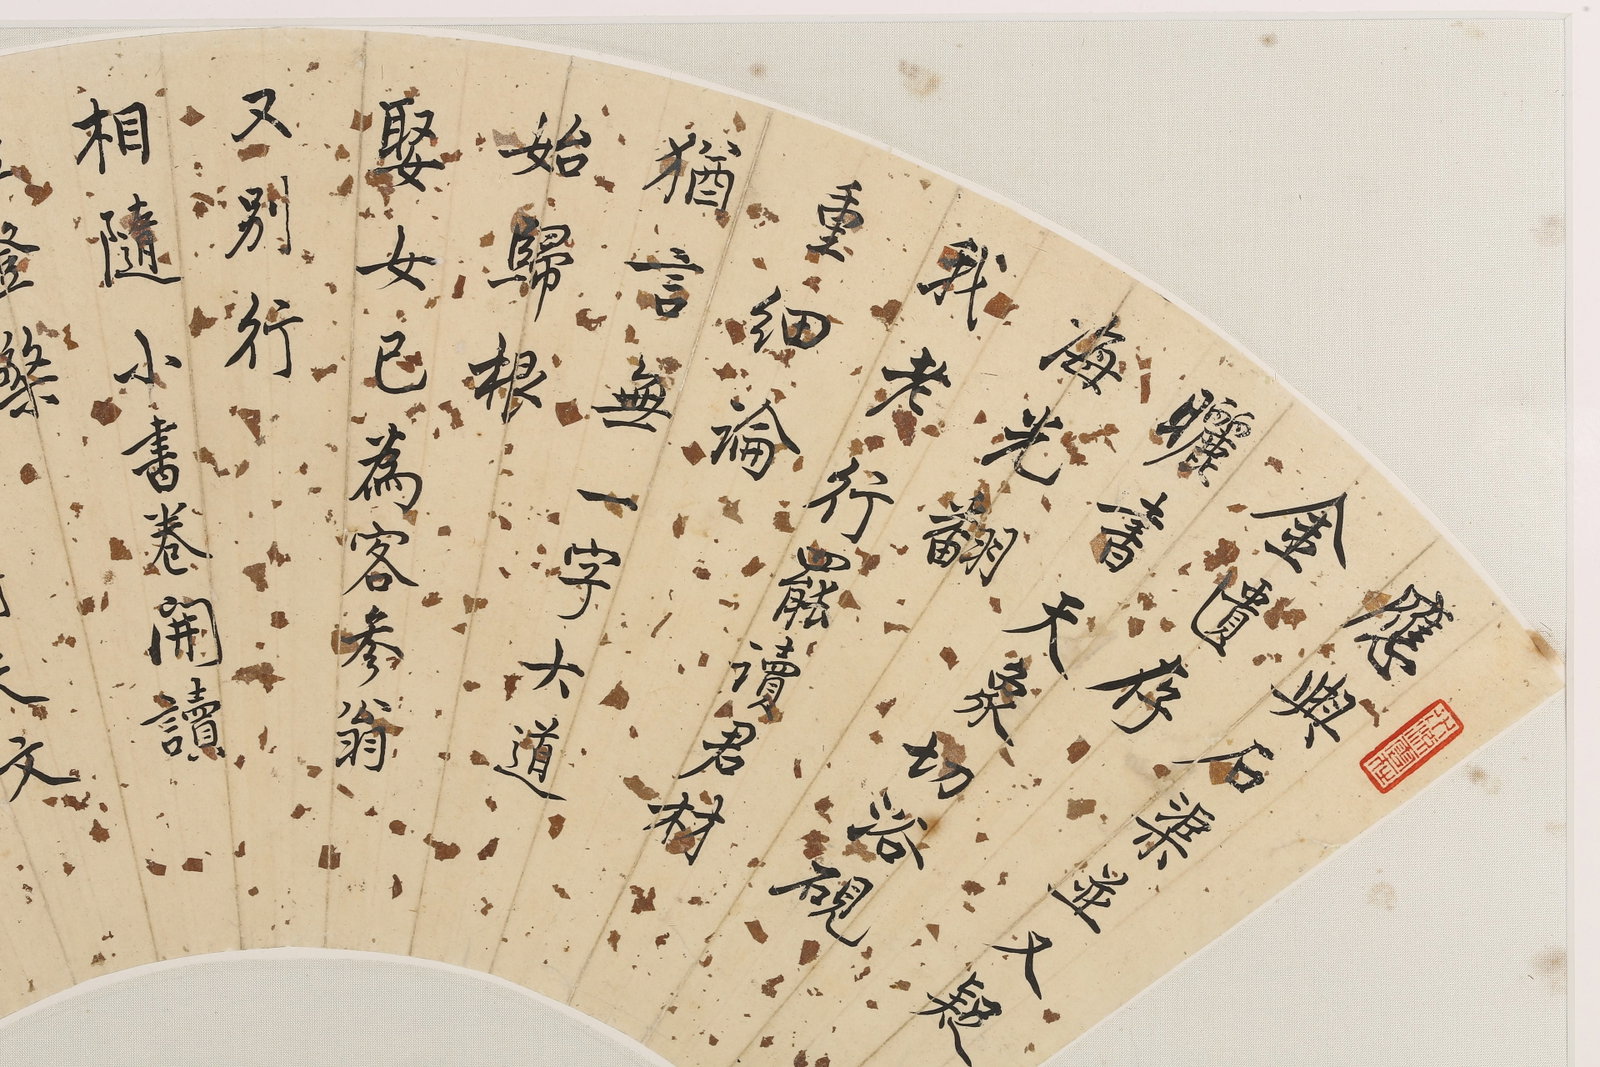 應與石渠並又疑
金匱存
曬書天象切浴硯
海光翻
我老行罷讀君材
重細論
猶言無一字大道
始歸根
娶女已為客參翁
又別行
相隨小書卷開讀
登槃
文